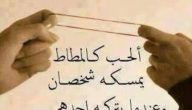 ألحب كالمطاط
يمسكه شخصان
وعندما يتركه احدهم